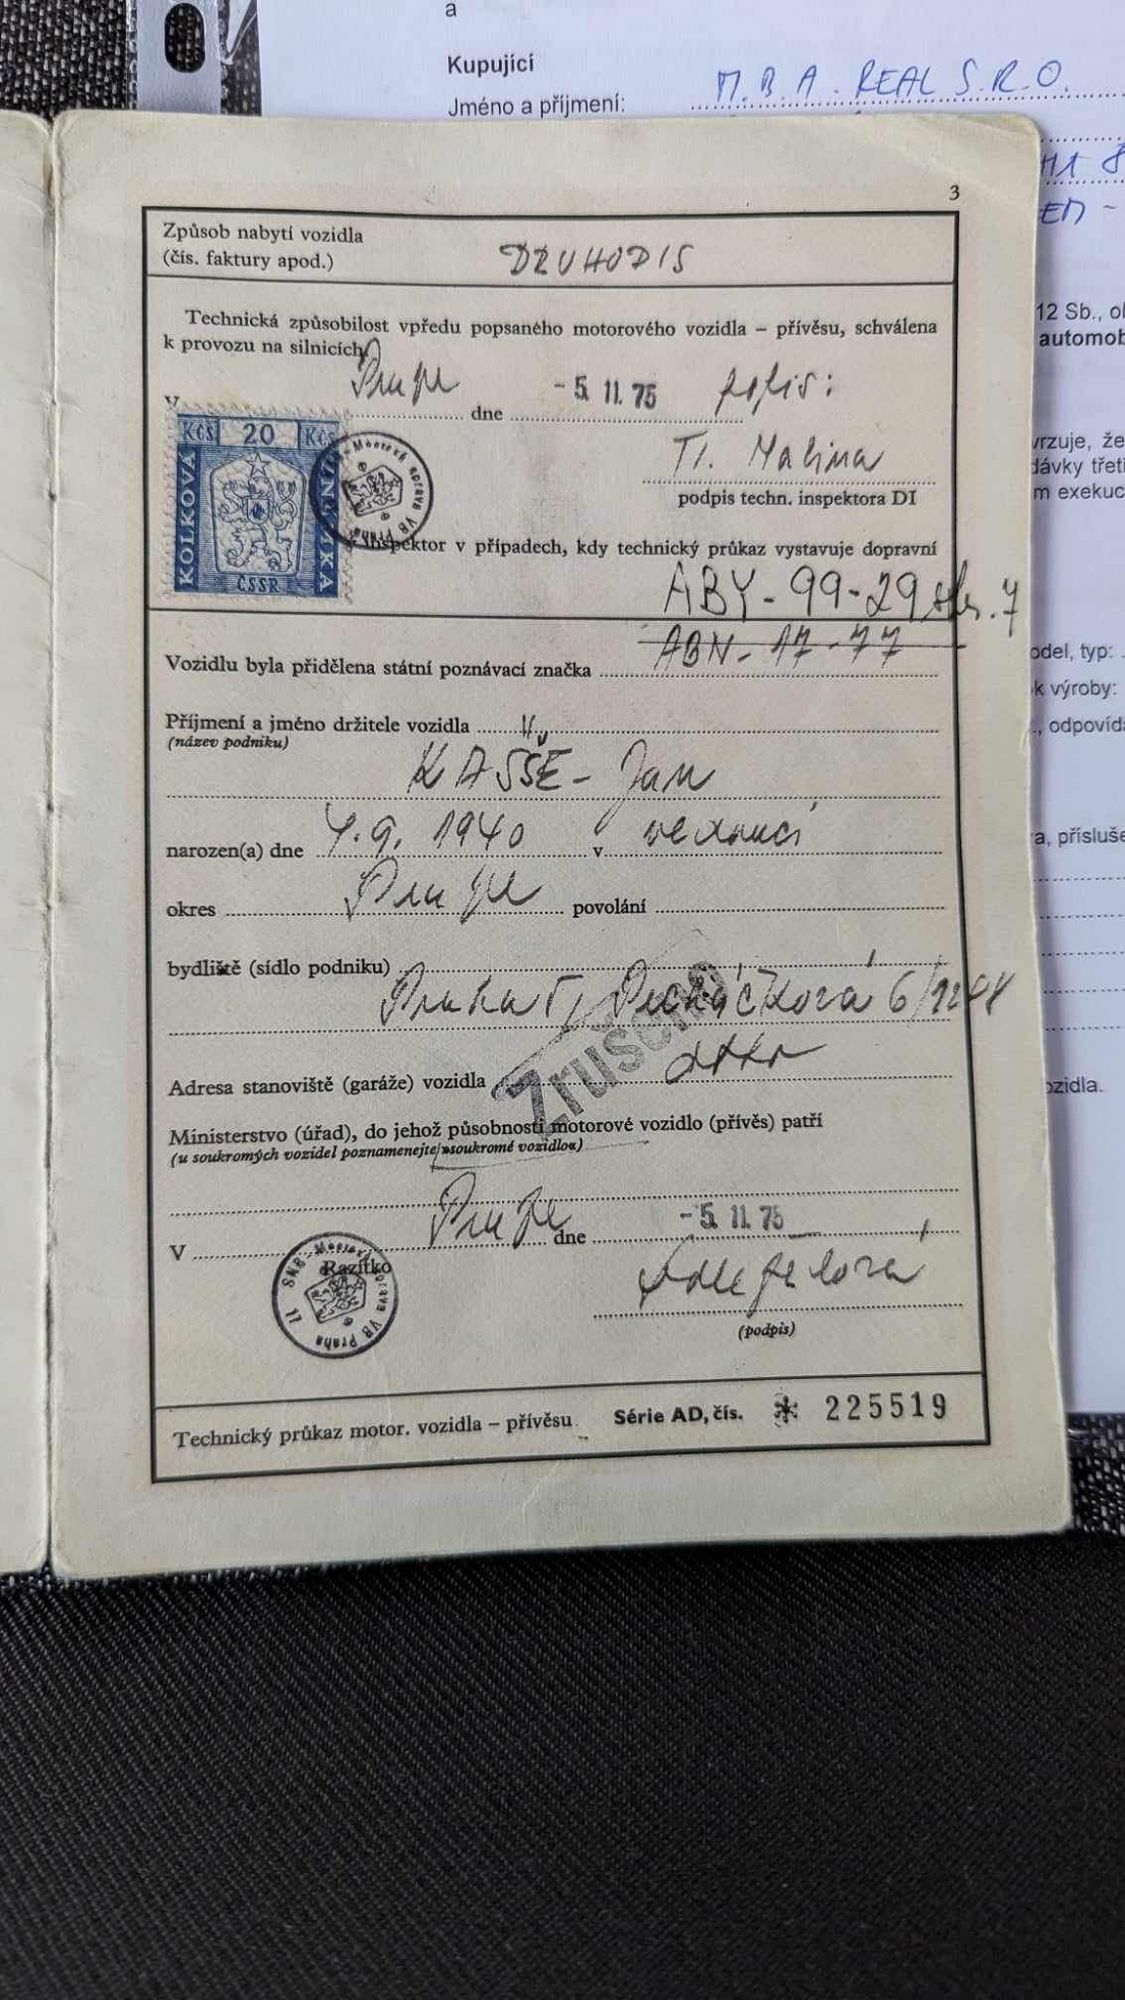 a
Kupující
Jméno a příjmení: M.B.A. REAL S.R.O.
3
Způsob nabytí vozidla
(čís. faktury apod.) DRUHOPIS
Technická způsobilost vpředu popsaného motorového vozidla – přívěsu, schválena
k provozu na silnicích
V Praze dne -5. 11. 75
Kčs 20 Kčs
KOLKOVÁ
ZNÁMKA
ČSSR
Tl. Malina
podpis techn. inspektora DI
inspektor v případech, kdy technický průkaz vystavuje dopravní
ABY-99-29 str. 7
Vozidlu byla přidělena státní poznávací značka ABN-17-77
Příjmení a jméno držitele vozidla
(název podniku)
KASŠE - Jan
narozen(a) dne 4.9.1940 v vedoucí
okres Praze povolání
bydliště (sídlo podniku)
Praha 5, 6/
Zrušeno
Adresa stanoviště (garáže) vozidla
Ministerstvo (úřad), do jehož působnosti motorové vozidlo (přívěs) patří
(u soukromých vozidel poznamenejte »soukromé vozidlo«)
V Praze dne -5. 11. 75
Razítko
SNB - Městská správa VB Praha 11
(podpis)
Technický průkaz motor. vozidla – přívěsu Série AD, čís. * 225519
12 Sb.,
automob
vrzuje, že
dávky třeti
m exekuc
odel, typ:
k výroby:
, odpovíd
a, přísluše
ozidla.